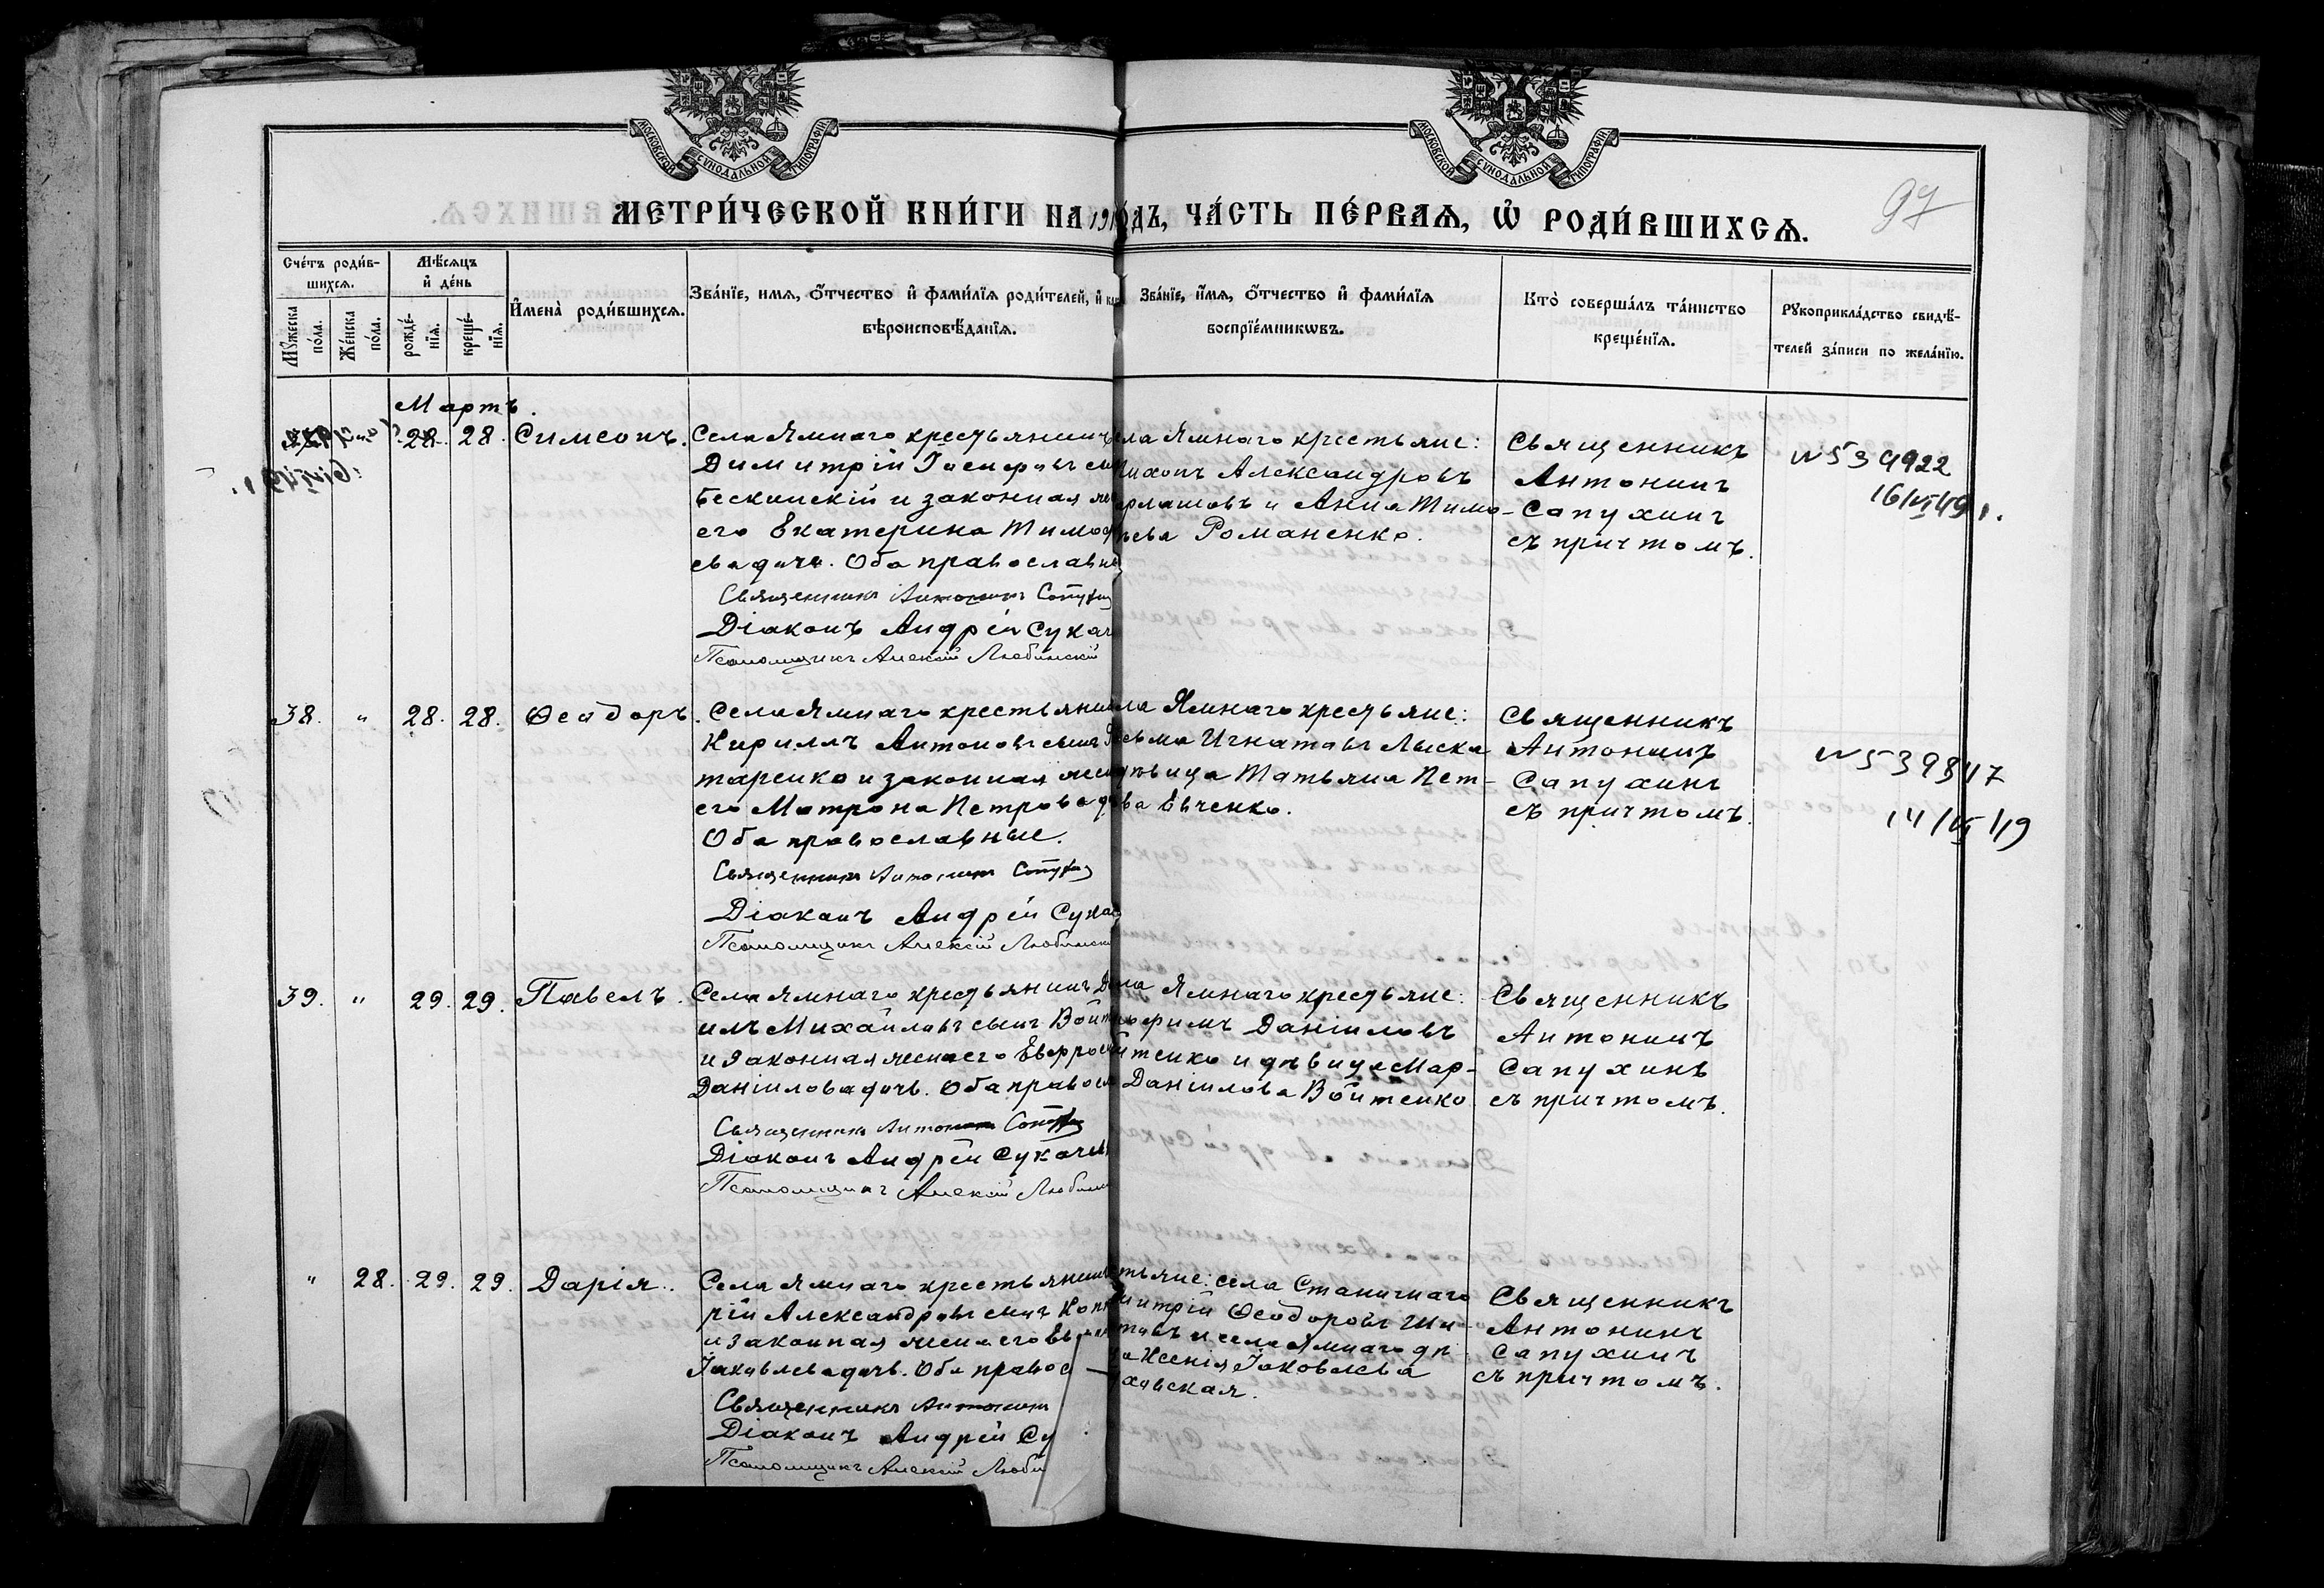 МОСКОВСКОЙ СѴНОДАЛЬНОЙ ТИПОГРАФІИ
МОСКОВСКОЙ СѴНОДАЛЬНОЙ ТИПОГРАФІИ
97
МЕТРИ́ЧЕСКОЙ КНИ́ГИ НА 191 ОДЪ, ЧА́СТЬ ПЕ́РВАѦ, Ѡ҆ РОДИ́ВШИХСѦ.
Сче́тъ роди́в-
шихсѧ.
Мꙋ́жеска по́ла.
Же́нска по́ла.
Мѣ́сѧцъ
и҆ де́нь
рожде́-нїѧ.
креще́-нїѧ.
И҆мена̀ роди́вшихсѧ.
Зва́нїе, имѧ, ѻ҆́тчество и҆ фами́лїѧ роди́телей, и҆
вѣроисповѣ́данїѧ.
Зва́нїе, и҆́мѧ, ѻ҆́тчество и҆ фами́лїѧ
воспрїе́мникѡвъ.
Кто̀ соверша́лъ та́инство
креще́нїѧ.
Рꙋкоприкла́дство свидѣ́-
телей за́писи по жела́нїю.
Мартъ.
28. 28. Симеонъ.
Села Ямнаго крестьянинъ
Димитрій Іосифовъ
бескинскій и законная
его Екатерина Тимоф
ева дочь. Оба православн
Священникъ Антонинъ
Діаконъ Андрей Сукач
Псаломщикъ Алексій Любинскій
ла Ямнаго крестьяне:
Александровъ
и Анна Тимо-
ѣева Романенко.
Священникъ
Антонинъ
Сапухинъ
съ причтомъ.
N 539922
16/VI 49 г.
38. " 28. 28. Ѳеодоръ.
Села Ямнаго крестьянин
Кириллъ Антоновъ сынъ
таренко и законная жен
его Матрона Петрова д
Оба православные.
Священникъ Антонинъ
Діаконъ Андрей Сукач
Псаломщикъ Алексій Любинск
ла Ямнаго крестьяне:
Игнатовъ Лыска
дѣвица Татьяна Пет-
ва
Священникъ
Антонинъ
Сапухинъ
съ причтомъ.
N 539847
14/VI 49
39. " 29. 29. Павелъ.
Села Ямнаго крестьянинъ Д
илъ Михайловъ сынъ Войт
и законная жена его Евфрос
Даніилова дочь. Оба правосл
Священникъ Антонинъ
Діаконъ Андрей Сукачев
Псаломщикъ Алексій Любин
ла Ямнаго крестьяне:
Даніиловъ
йтенко и дѣвица Мар-
Даніилова Войтенко
Священникъ
Антонинъ
Сапухинъ
съ причтомъ.
" 28. 29. 29. Дарія.
Села Ямнаго крестьянинъ
рій Александровъ сынъ
и законная жена его
Іаковлева дочь. Оба правос
Священникъ Антонинъ
Діаконъ Андрей Су
Псаломщикъ Алексій Люби
стьяне: села Станичнаго
митрій Ѳеодоровъ
и села Ямнаго дѣ
ца Ксенія Іаковлева
ховская.
Священникъ
Антонинъ
Сапухинъ
съ причтомъ.